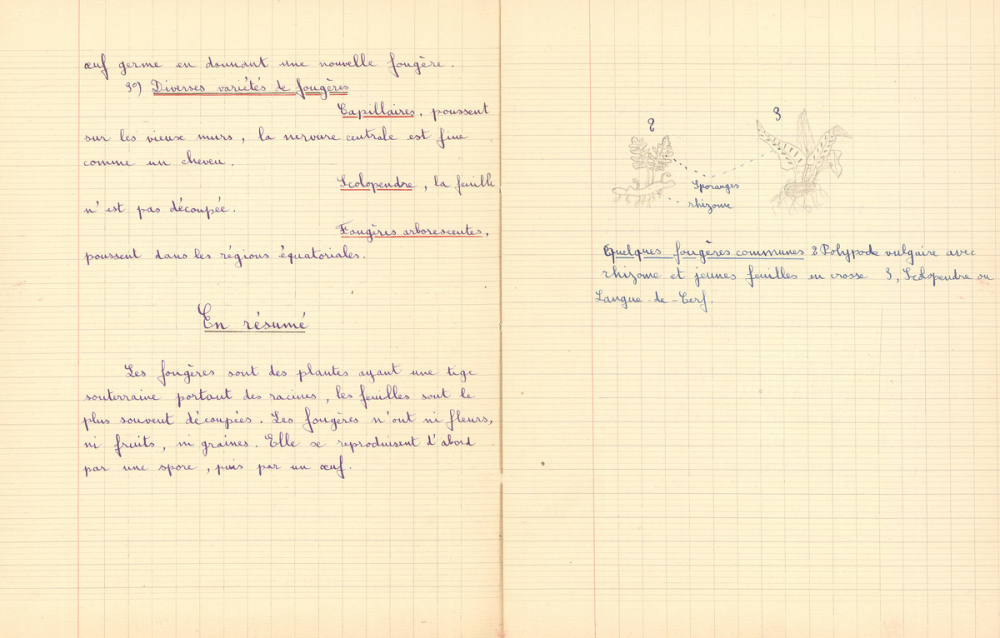 œuf germe en donnant une nouvelle fougère.
3º) Diverses variétés de fougères
Capillaires, poussent
sur les vieux murs, la nervure centrale est fine
comme un cheveu.
Scolopendre, la feuille
n'est pas découpée.
Fougères arborescentes,
poussent dans les régions équatoriales.
En résumé
Les fougères sont des plantes ayant une tige
souterraine portant des racines, les feuilles sont le
plus souvent découpées. Les fougères n'ont ni fleurs,
ni fruits, ni graines. Elle se reproduisent d'abord
par une spore, puis par un œuf.
2 3
Sporanges
rhizome
Quelques fougères communes 2 Polypode vulgaire avec
rhizome et jeunes feuilles en crosse 3, Scolopendre ou
Langue-de-Cerf.